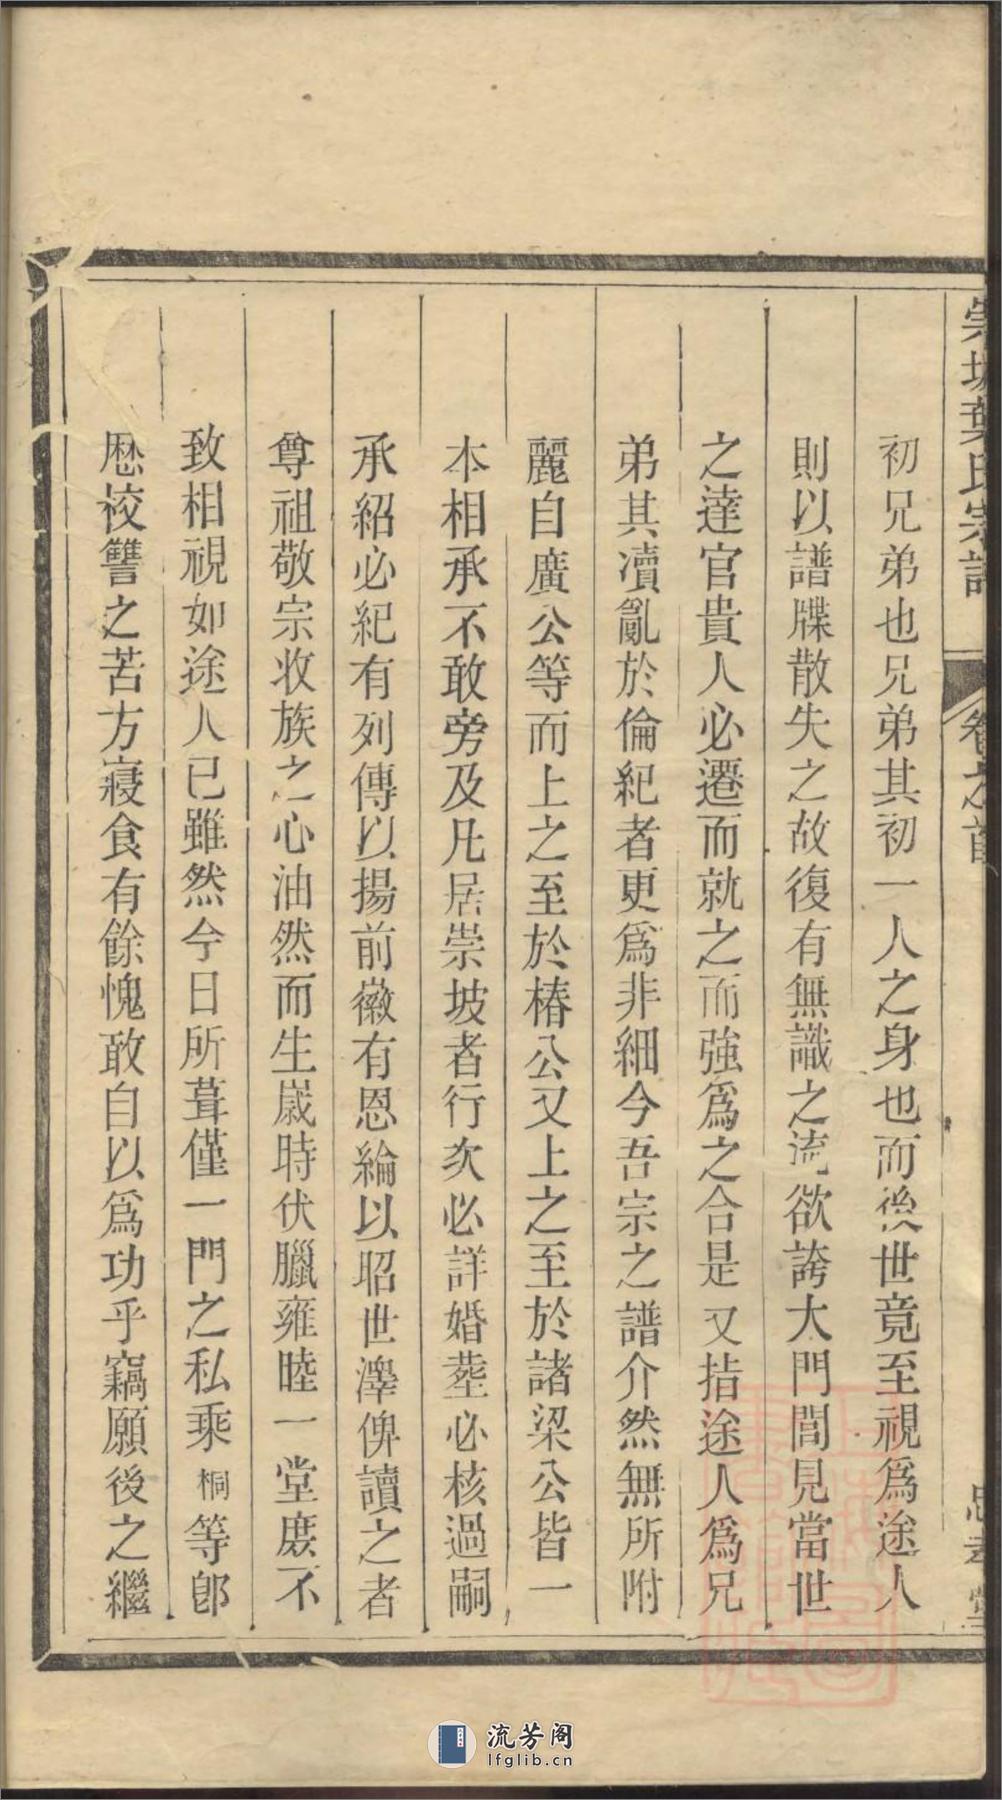 崇坡葉氏宗譜 卷之首 忠孝堂
初兄弟也兄弟其初一人之身也而後世竟至視爲途人
則以譜牒散失之故復有無識之流欲誇大門閭見當世
之達官貴人必遷而就之而強爲之合是又指途人爲兄
弟其瀆亂於倫紀者更爲非細今吾宗之譜介然無所附
麗自廣公等而上之至於椿公又上之至於諸梁公皆一
本相承不敢旁及凡居崇坡者行次必詳婚塟必核過嗣
承紹必紀有列傳以揚前徽有恩綸以昭世澤俾讀之者
尊祖敬宗收族之心油然而生歲時伏臘雍睦一堂庶不
致相視如途人已雖然今日所葺僅一門之私乘桐等卽
歷校讐之苦方寢食有餘愧敢自以爲功乎竊願後之繼
流芳阁
lfglib.cn